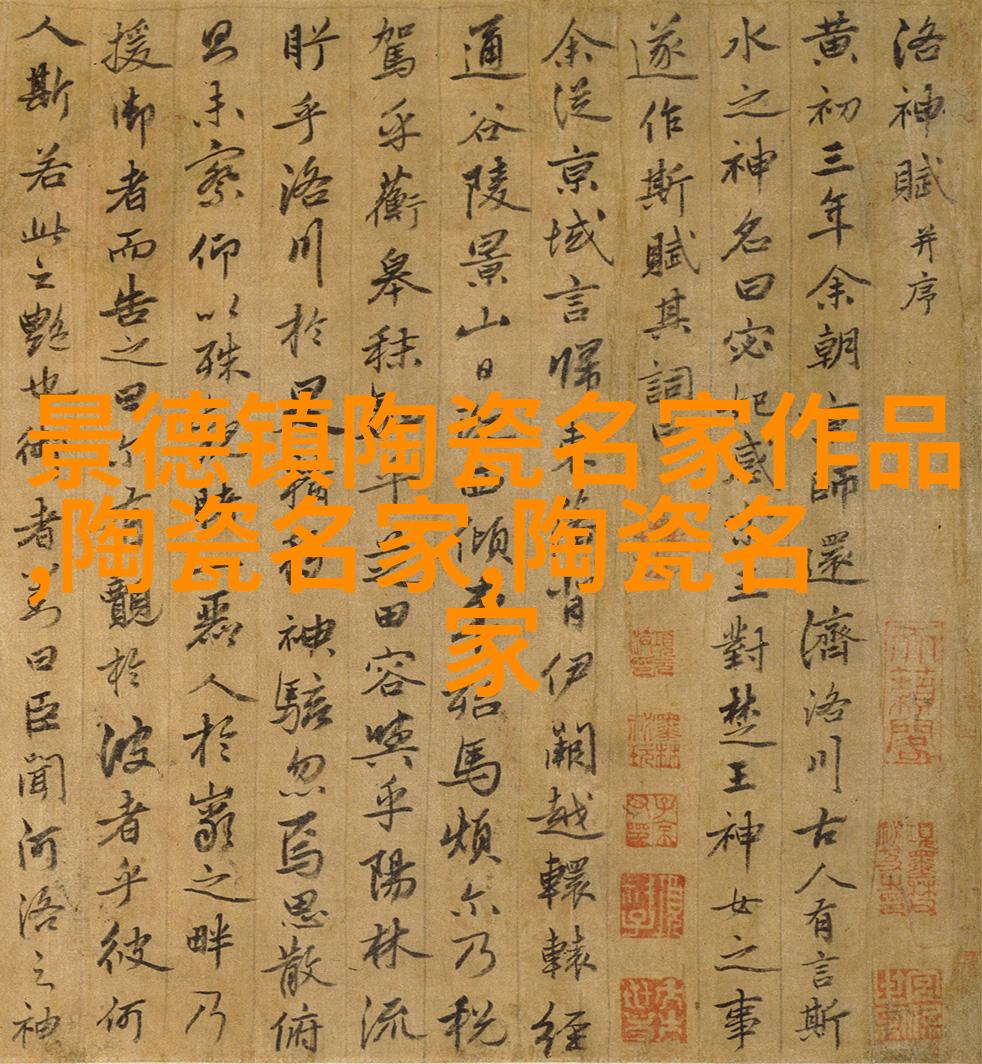 洛神賦并序
黄初三年余朝京師還濟洛川古人有言斯
水之神名曰宓妃感宋玉對楚王神女之事
遂作斯賦其詞曰
余従京域言歸東藩背伊闕越轘轅經
通谷陵景山日既西傾車殆馬煩尒乃税
駕乎蘅皋秣駟乎芝田容與乎陽林流
眄乎洛川於是精移神駭忽焉思散俯
則未察仰以殊觀睹一麗人於巖之畔乃
援御者而告之曰尒有覿於彼者乎彼何
人斯若此之艷也御者對曰臣聞河洛之神
景德镇陶瓷名家作品
,陶瓷名家,陶瓷名
家